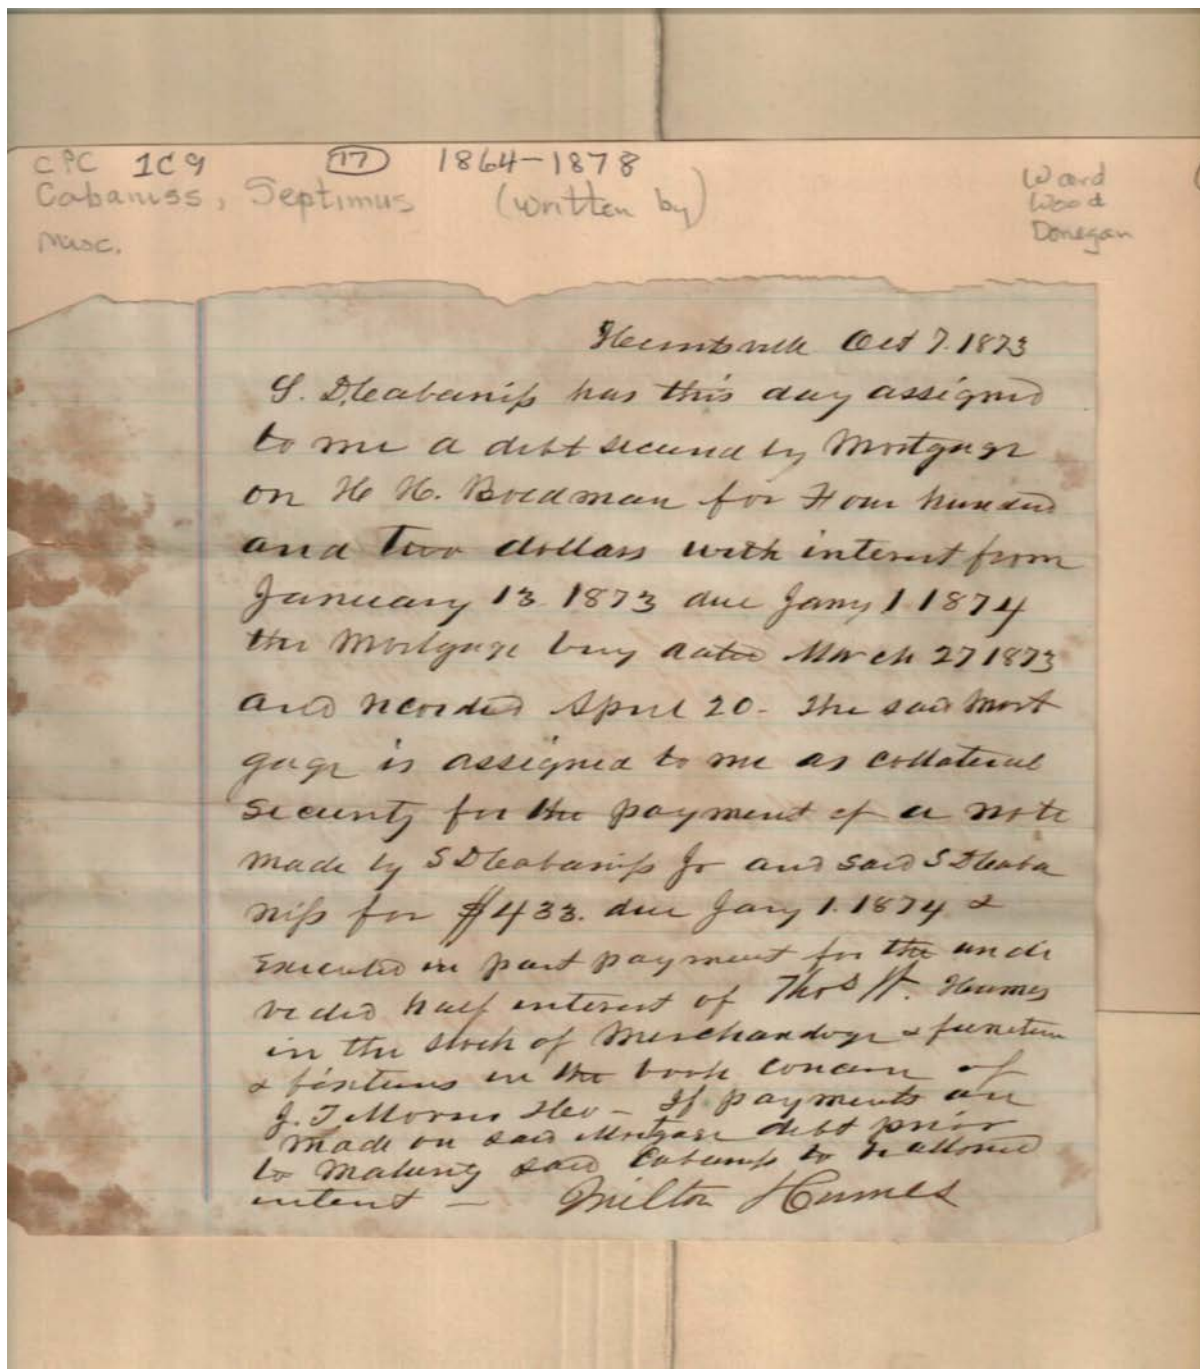 CPC 1C9 17 1864-1878
Cabaniss, Septimus (written by)
Misc.
Ward
Wood
Donegan
Huntsville Oct 7. 1873
S. D. Cabaniss has this day assigned
to me a debt secured by Mortgage
on H H. Boardman for Four hundred
and two dollars with interest from
January 13 1873 due Jany 1 1874
the Mortgage being dated March 27 1873
and recorded April 20 - The said Mort
gage is assigned to me as collateral
security for the payment of a note
made by S D Cabaniss Jr and said S D Caba
niss for $433. due Jany 1. 1874 &
Executed in part payment for the undi
vided half interest of Thos W. Humes
in the stock of Merchandize & furniture
& fixtures in the book concern of
J. T. Morris - If payments are
made on said Mortgage debt prior
to Maturity said Cabaniss to be allowed
interest - Milton Humes